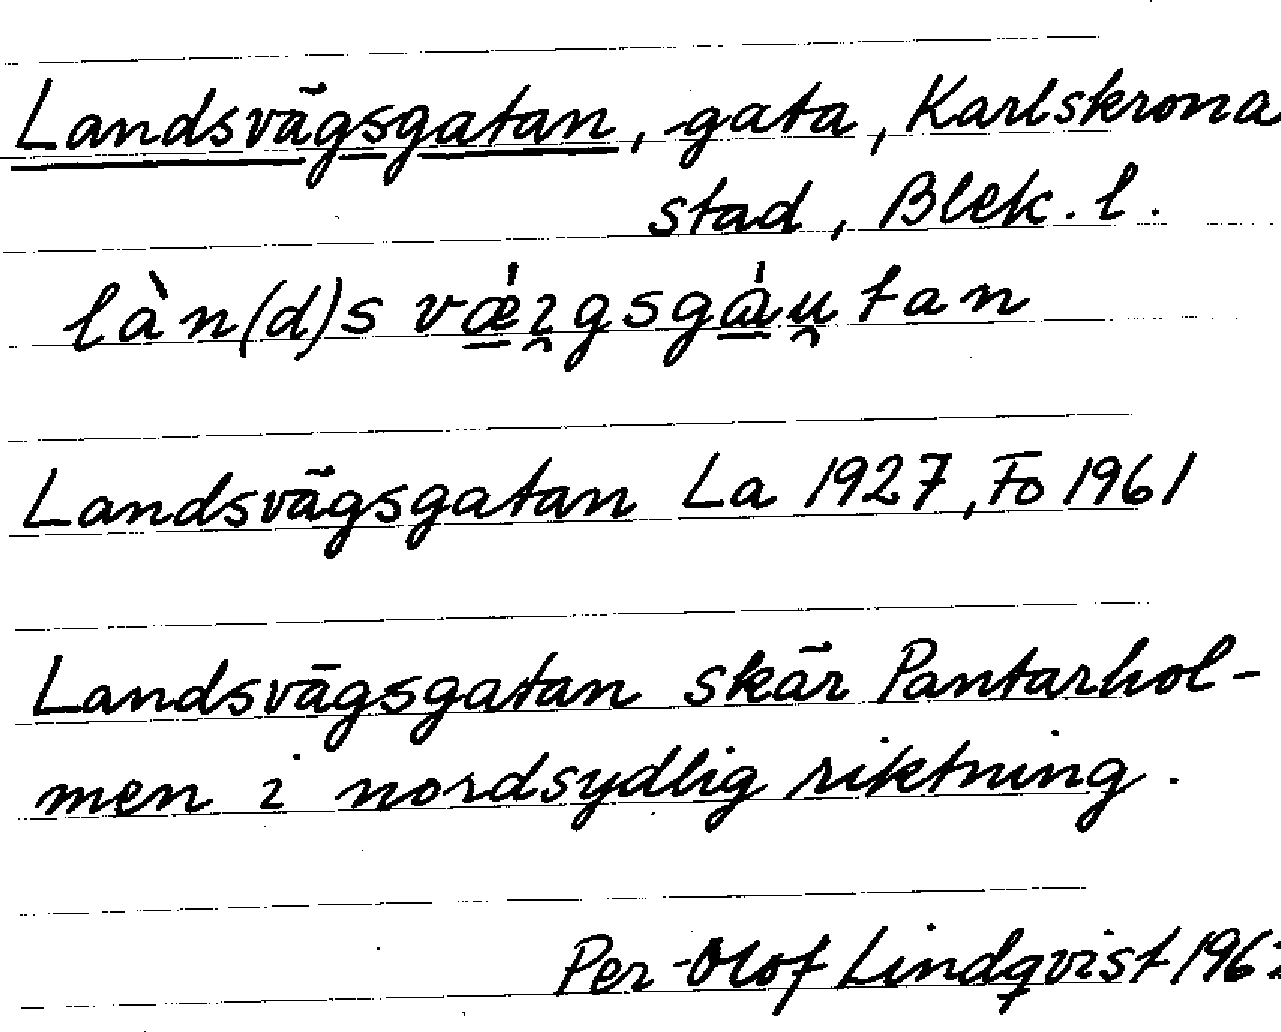 Landsvägsgatan, gata, Karlskrona
stad, Blek. l.
làn(d)s vǽ̠ı̯gsgɑ̠́u̯tan
Landsvägsgatan La 1927, Fo 1961
Landsvägsgatan skär Pantarhol-
men i nordsydlig riktning.
Per-Olof Lindqvist